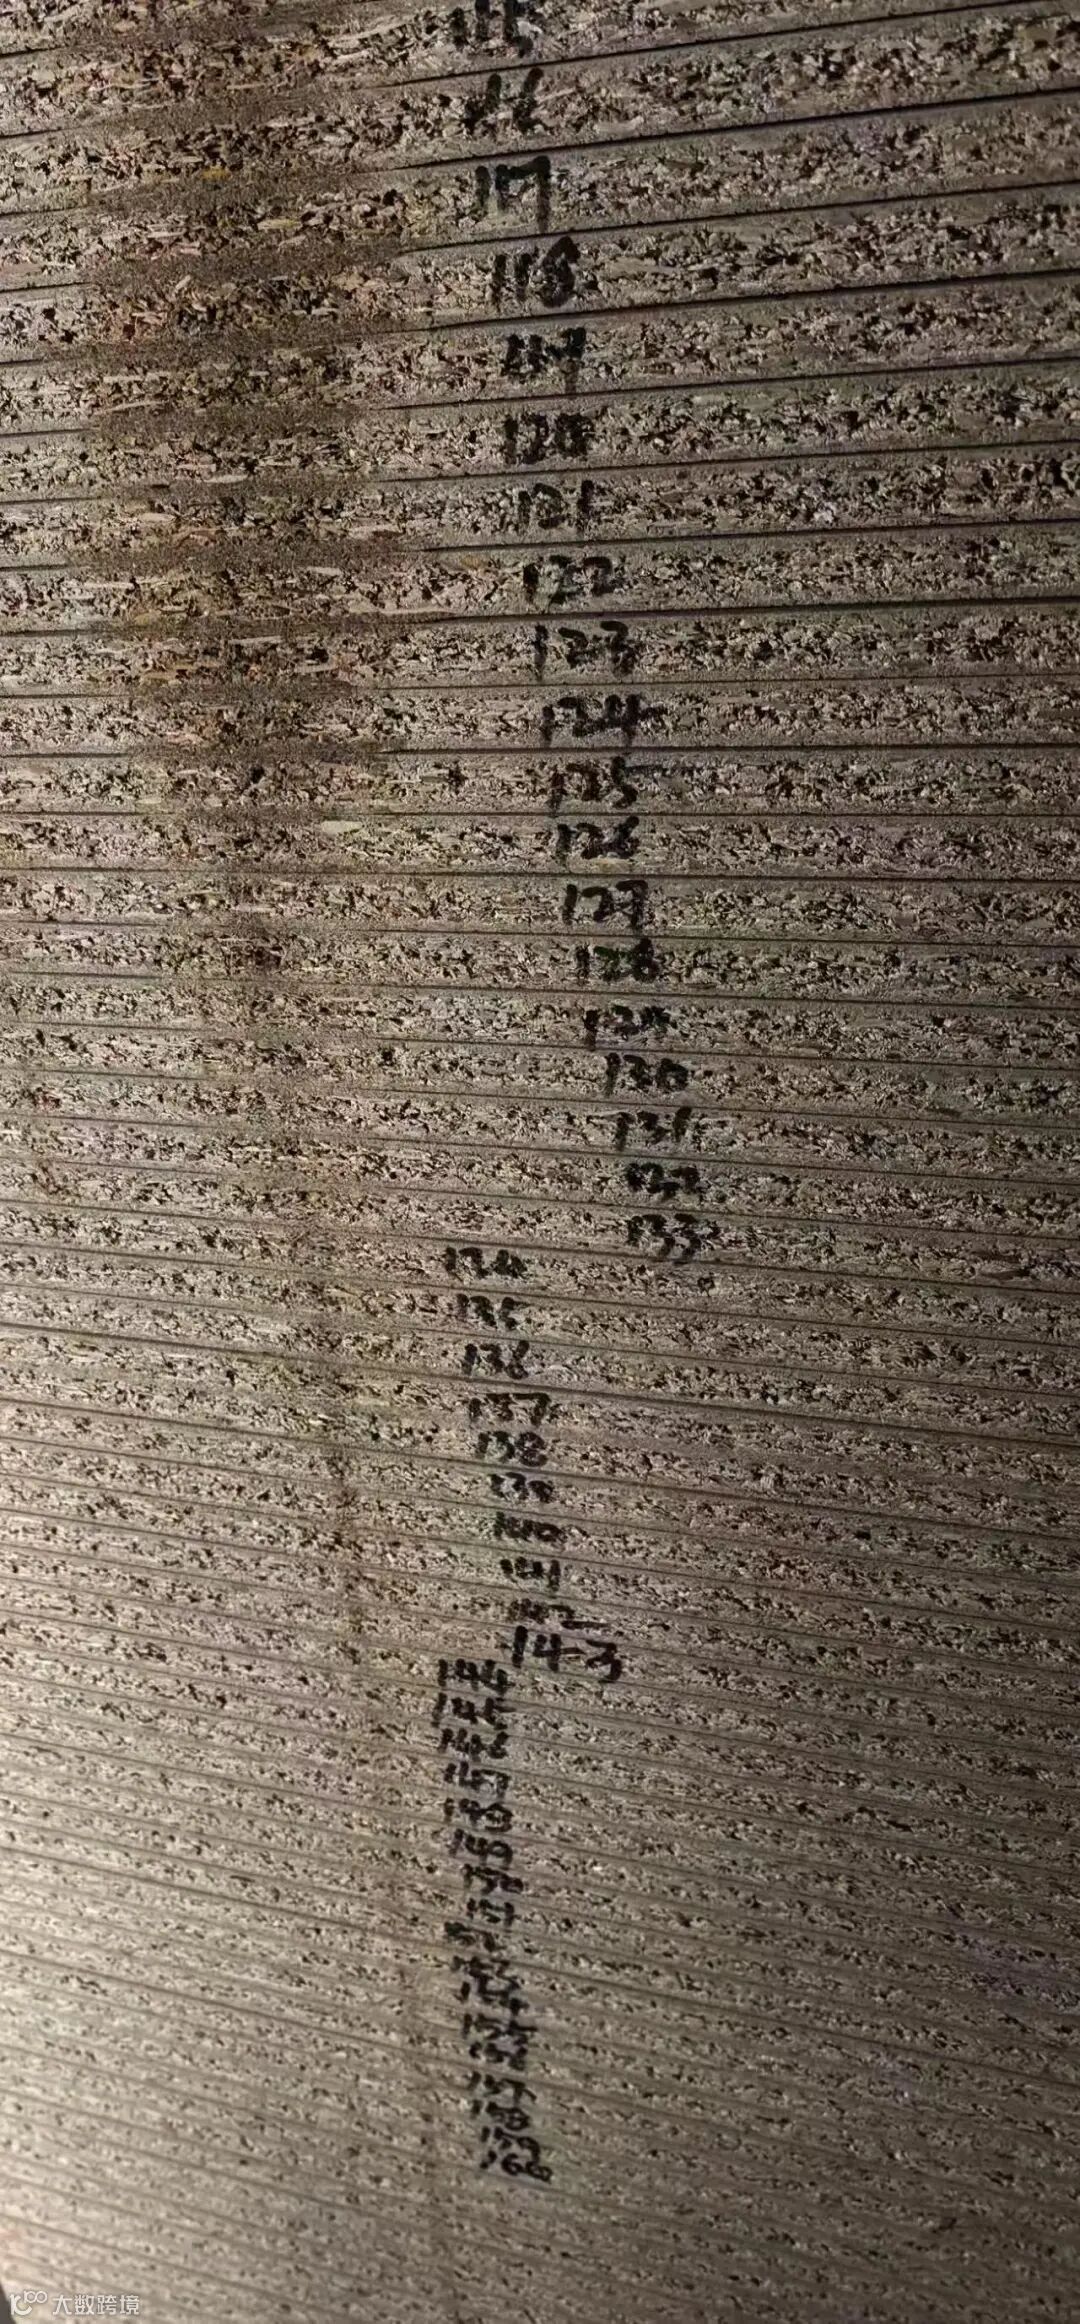 115
116
117
118
119
120
121
122
123
124
125
126
127
128
129
130
131
132
133
134
135
136
137
138
139
140
141
142
143
144
145
146
147
148
149
150
151
152
153
154
155
156
157
158
159
160
大数跨境